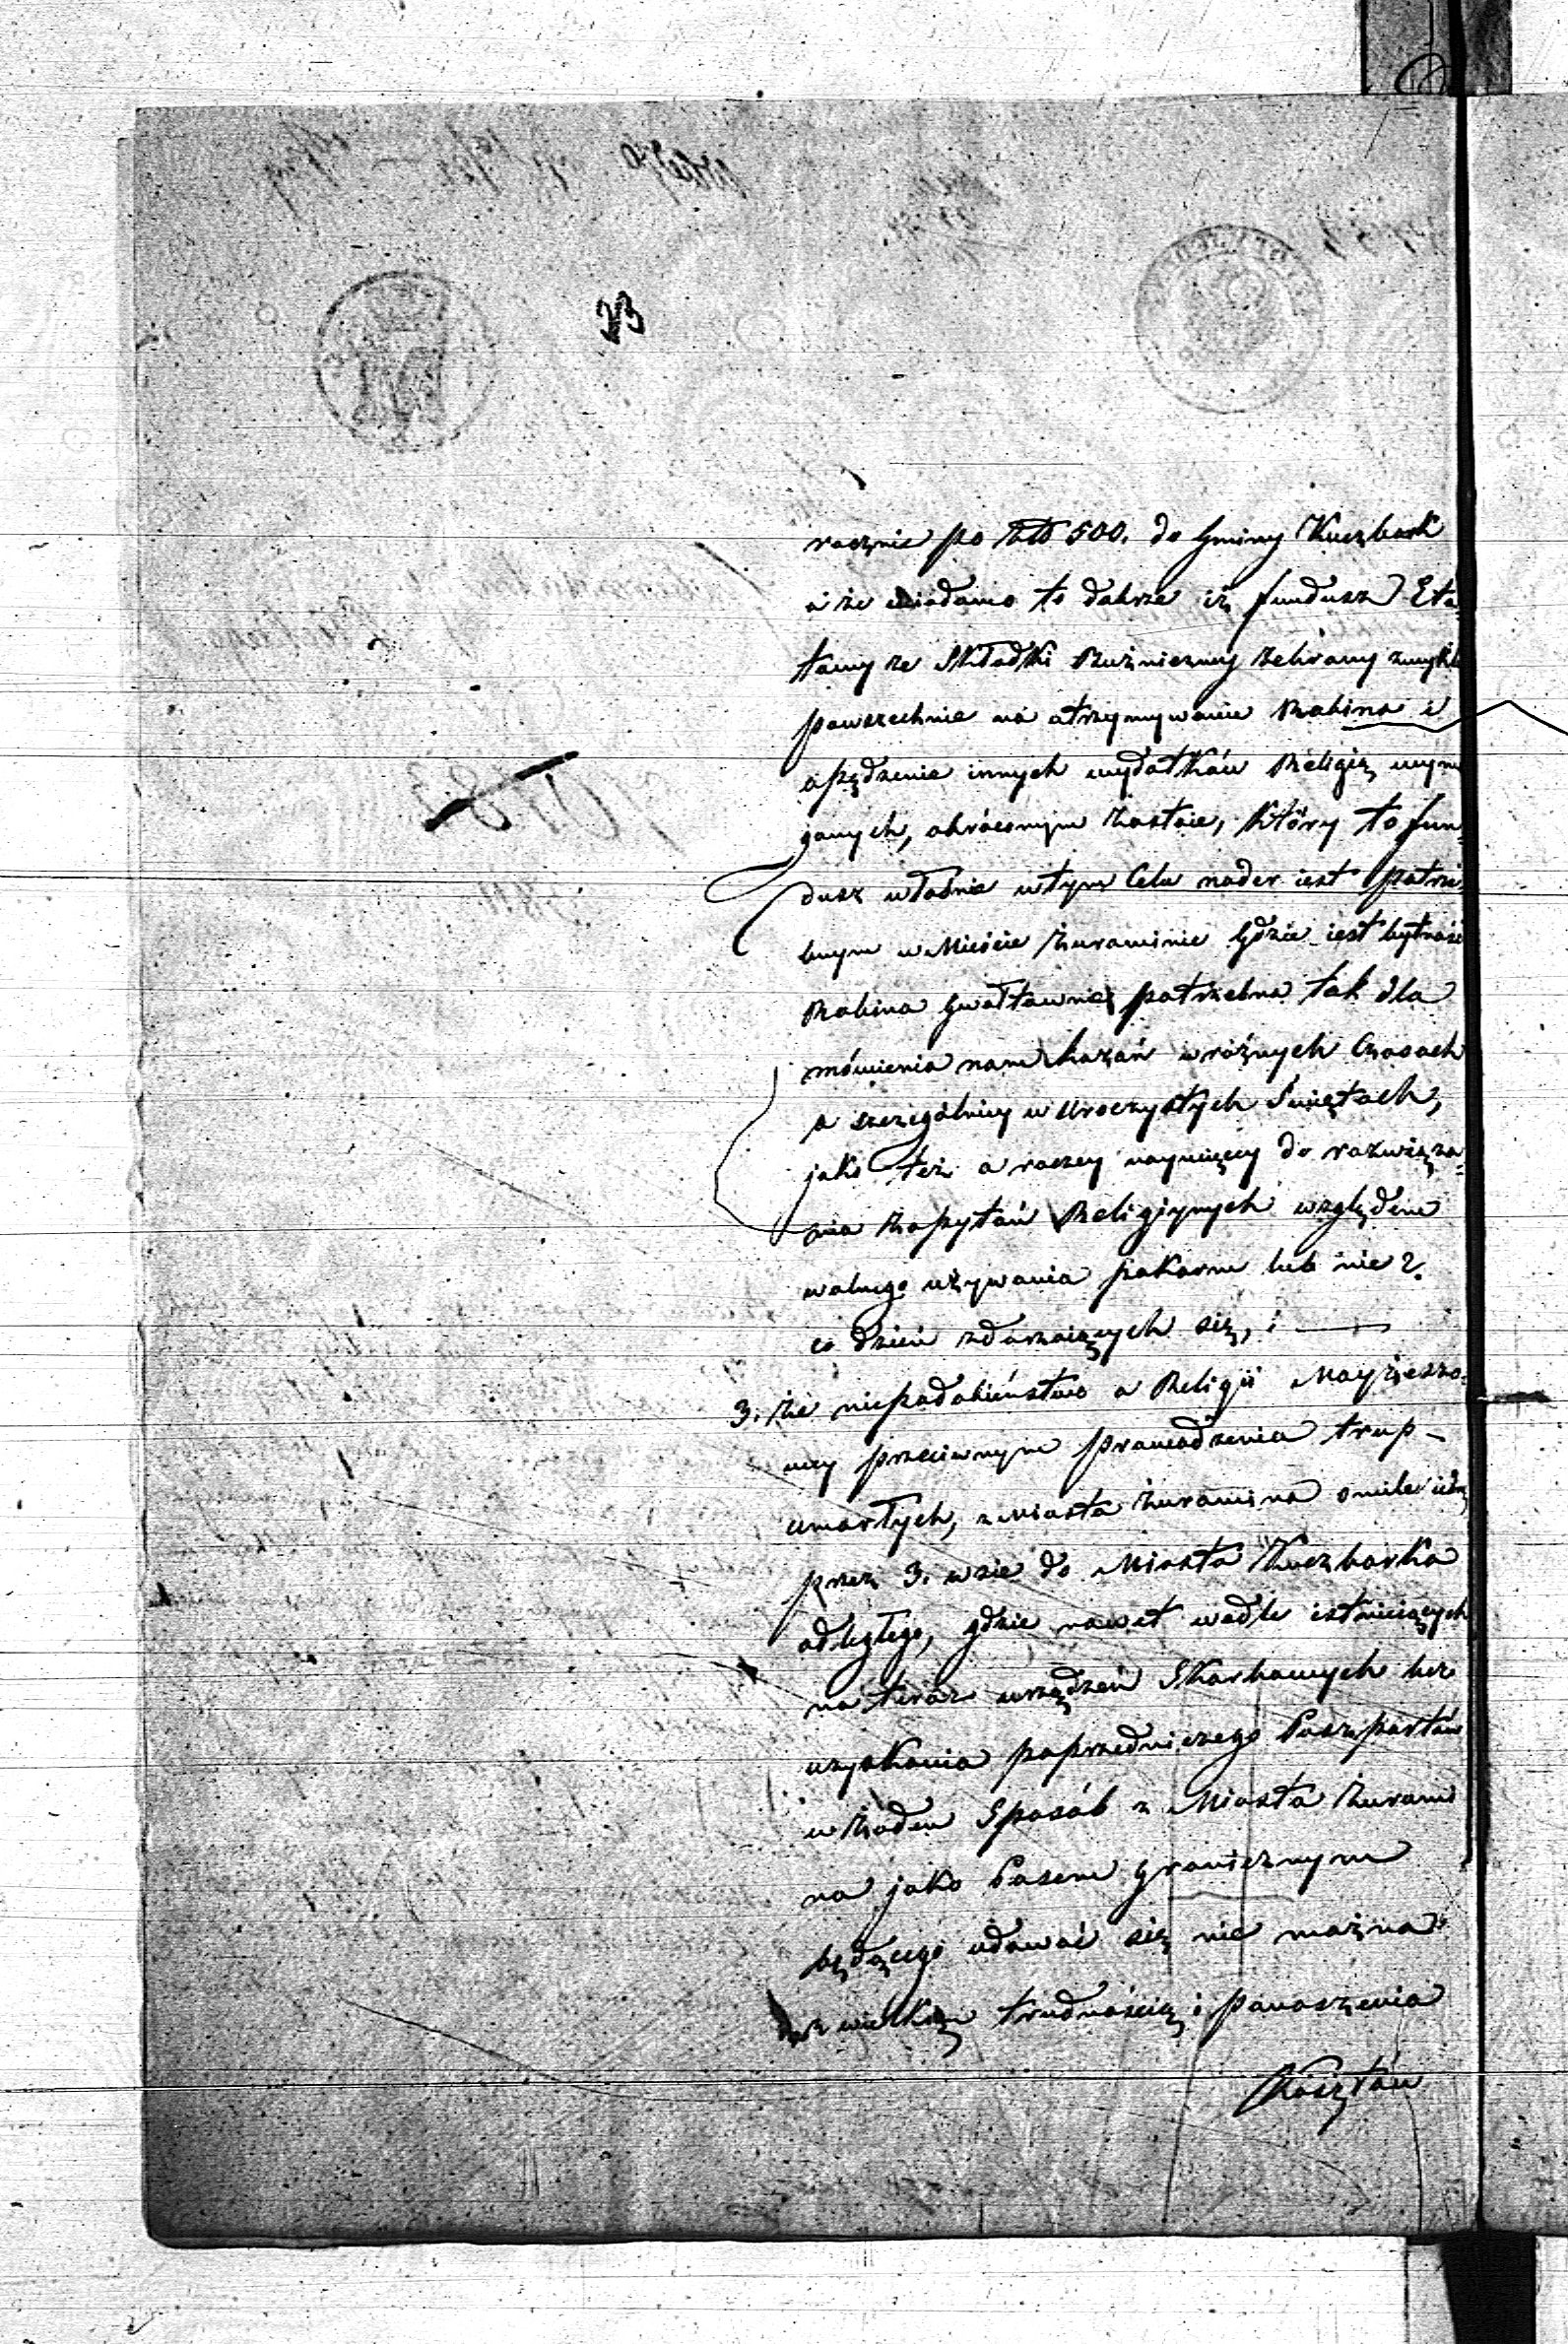 rocznie po Złt 500. do Gminy Kuczbork
a że wiadomo to dobrze iż fundusz Eta-
towy ze Składki Bużniczney zebrany zwykle
powszechnie na otrzymywanie Rabina i
opędzenie innych wydatków Religią wym
ganych, obróconym zostaie, który to fun-
dusz właśnie w tym Celu nader iest potrze
bnym w Mieście Żurominie gdzie iest bytność
Rabina gwałtownie potrzebna tak dla
mówienia nam kazań w różnych Czasach
a szczególniey w Uroczystych Świętach,
jako też a raczey naywięcey do rozwiąza=
nia Zapytań Religijnych względem
wolnego używania pokarm lub nie?
co dzień zdarzaiących się, i —
3. Że niepodobieństwo a Religii Mayżeszo=
wey przeciwnym prowadzenia trup-
umarłych, z Miasta Żuromina o mile iedną
przez 3. wsie do Miasta Kuczborka
odległego, gdzie nawet wedle istnieiących
na teraz urządzeń Skarbowych bez
uzyskania poprzedniczego Paszportów
w żaden Sposób z Miasta Żuromi
na jako Pasem granicznym
będącego udawać się nie można
wielkią trudnością i ponoszenia
Kosztów